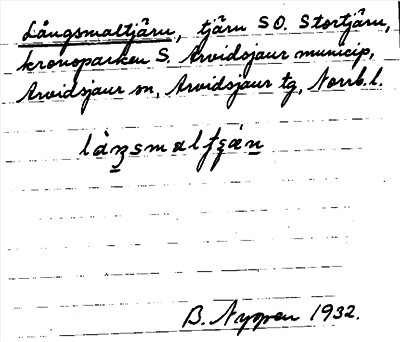 Långsmaltjärn, tjärn SO. Stortjärn,
kronoparken S, Arvidsjaur municip,
Arvidsjaur sn, Arvidsjaur tg, Norrb. l.
B. Nyman 1932.